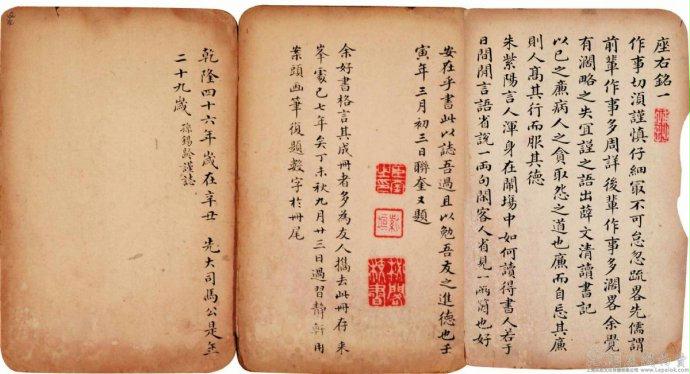 座右銘一
作事切須謹慎仔細最不可怠忽疏畧先儒謂
前輩作事多周詳後輩作事多濶畧余覺
有濶略之失宜謹之語出薛文清讀書記
以己之廉病人之貪取怨之道也廉而自忘其廉
則人高其行而服其德
朱紫陽言人渾身在鬧場中如何讀得書人若于
日間閒言語省說一兩句閒客人省見一兩箇也好
安在乎書此以誌吾過且以勉吾友之進德也壬
寅年三月初三日聯奎又題
余好書格言其成冊者多為友人攜去此冊存來
峯處已七年矣丁未秋九月廿三日過習靜軒用
案頭画筆復題數字於冊尾
乾隆四十六年歲在辛丑 先大司馬公是年
二十九歲 孫錫齡謹誌
www.Lepaiok.com